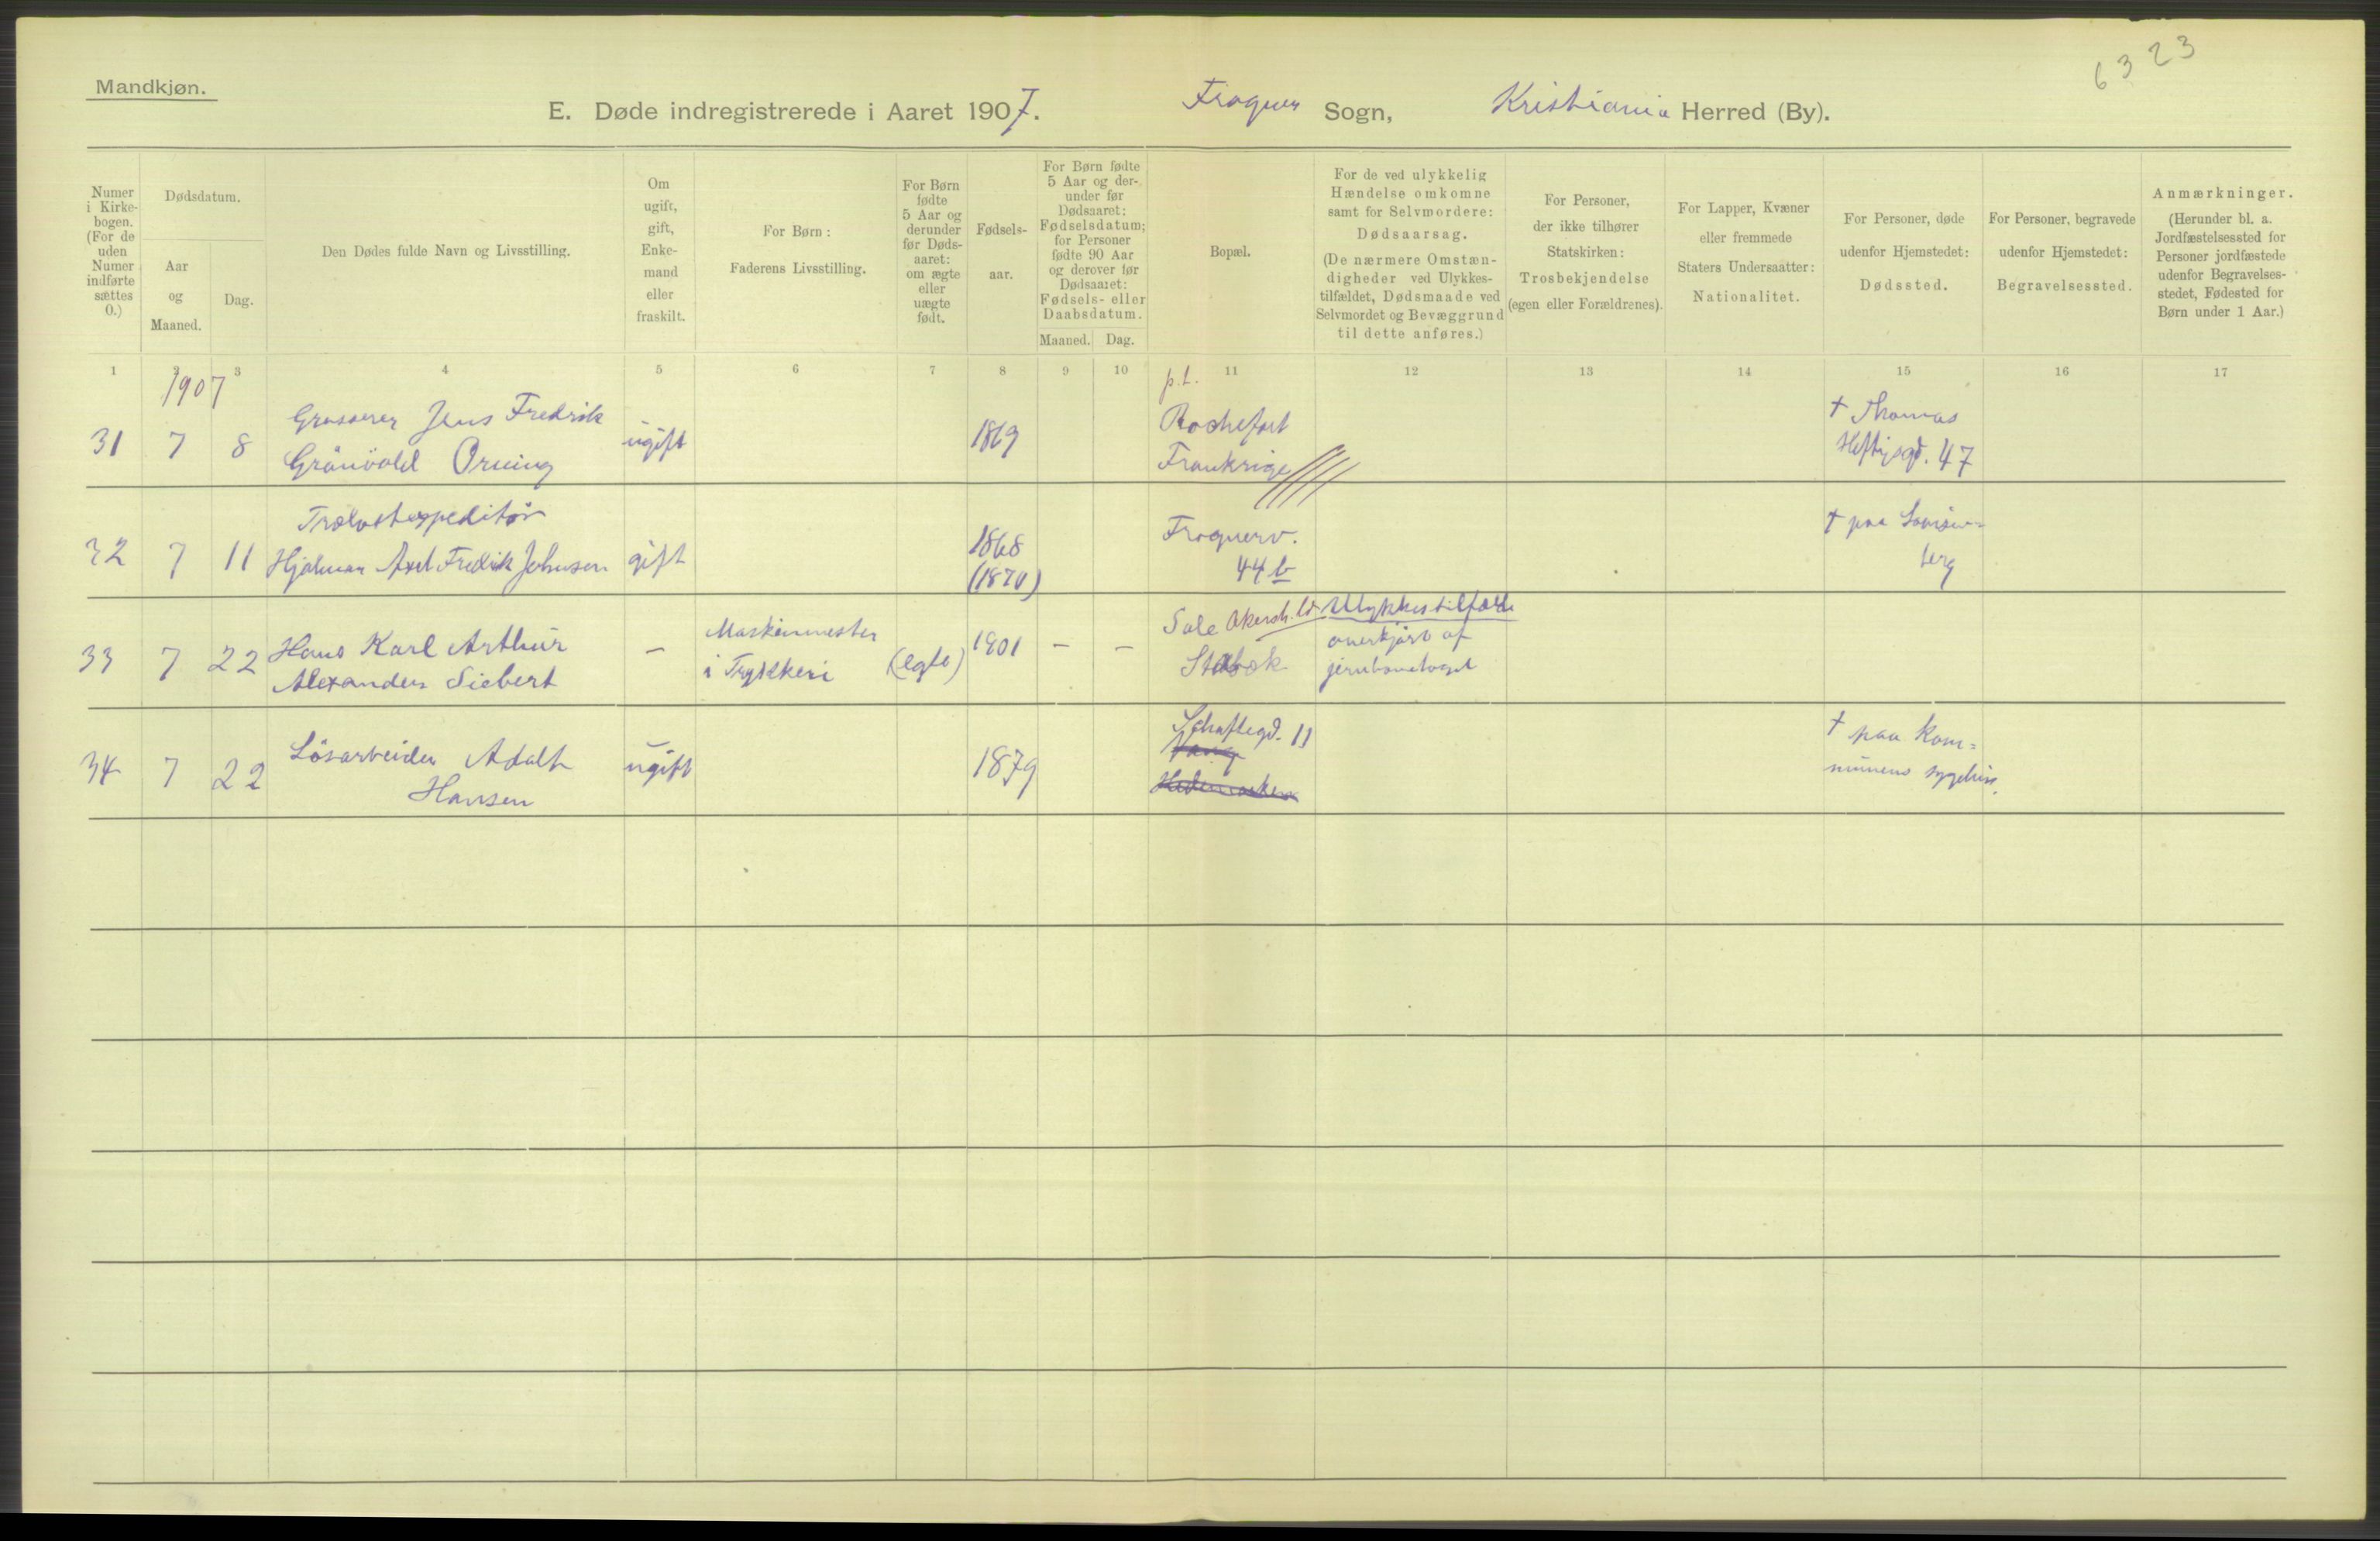 6323
Mandkjøn.
E. Døde indregistrerede i Aaret 1907. Frogner Sogn, Kristiania Herred (By).
Numer
i Kirke-
bogen.
(For de
uden
Numer
indførte
sættes
0.)
Dødsdatum.
Aar
og
Maaned.
Dag.
Den Dødes fulde Navn og Livsstilling.
Om
ugift,
gift,
Enke-
mand
eller
fraskilt.
For Børn:
Faderens Livsstilling.
For Børn
fødte
5 Aar og
derunder
før Døds-
aaret:
om ægte
eller
uægte
født.
Fødsels-
aar.
For Børn fødte
5 Aar og der-
under før
Dødsaaret:
Fødselsdatum;
for Personer
fødte 90 Aar
og derover før
Dødsaaret:
Fødsels- eller
Daabsdatum.
Maaned. Dag.
Bopæl.
For de ved ulykkelig
Hændelse omkomne
samt for Selvmordere:
Dødsaarsag.
(De nærmere Omstæn-
digheder ved Ulykkes-
tilfældet, Dødsmaade ved
Selvmordet og Bevæggrund
til dette anføres.)
For Personer,
der ikke tilhører
Statskirken:
Trosbekjendelse
(egen eller Forældrenes).
For Lapper, Kvæner
eller fremmede
Staters Undersaatter:
Nationalitet.
For Personer, døde
udenfor Hjemstedet:
Dødssted.
For Personer, begravede
udenfor Hjemstedet:
Begravelsessted.
Anmærkninger.
(Herunder bl. a.
Jordfæstelsessted for
Personer jordfæstede
udenfor Begravelses-
stedet, Fødested for
Børn under 1 Aar.)
1 2 3 4 5 6 7 8 9 10 11 12 13 14 15 16 17
1907
31 7 8
Grosserer Jens Fredrik
Grönvold Orning
ugift
1869
p.t.
Rochefort
Frankrige
† Thomas
Heftyesgd. 47
32 7 11
Trælastexpeditör
Hjalmar Axel Fredrik Johnsen
gift
1868
(1870)
Frognerv.
44 b
† paa Louisen-
berg
33 7 22
Hans Karl Arthur
Alexander Siebert
—
Maskinmester
i Trykkeri
(egte)
1901
— —
Sole Akersh.
Stabæk
Ulykkestilfælde
overkjørt af
jernbanetoget
34 7 22
Lösarbeider Adolf
Hansen
ugift
1879
Schaftegd. 11
Vang
Hedemarken
† paa Kom=
munens sygehus.